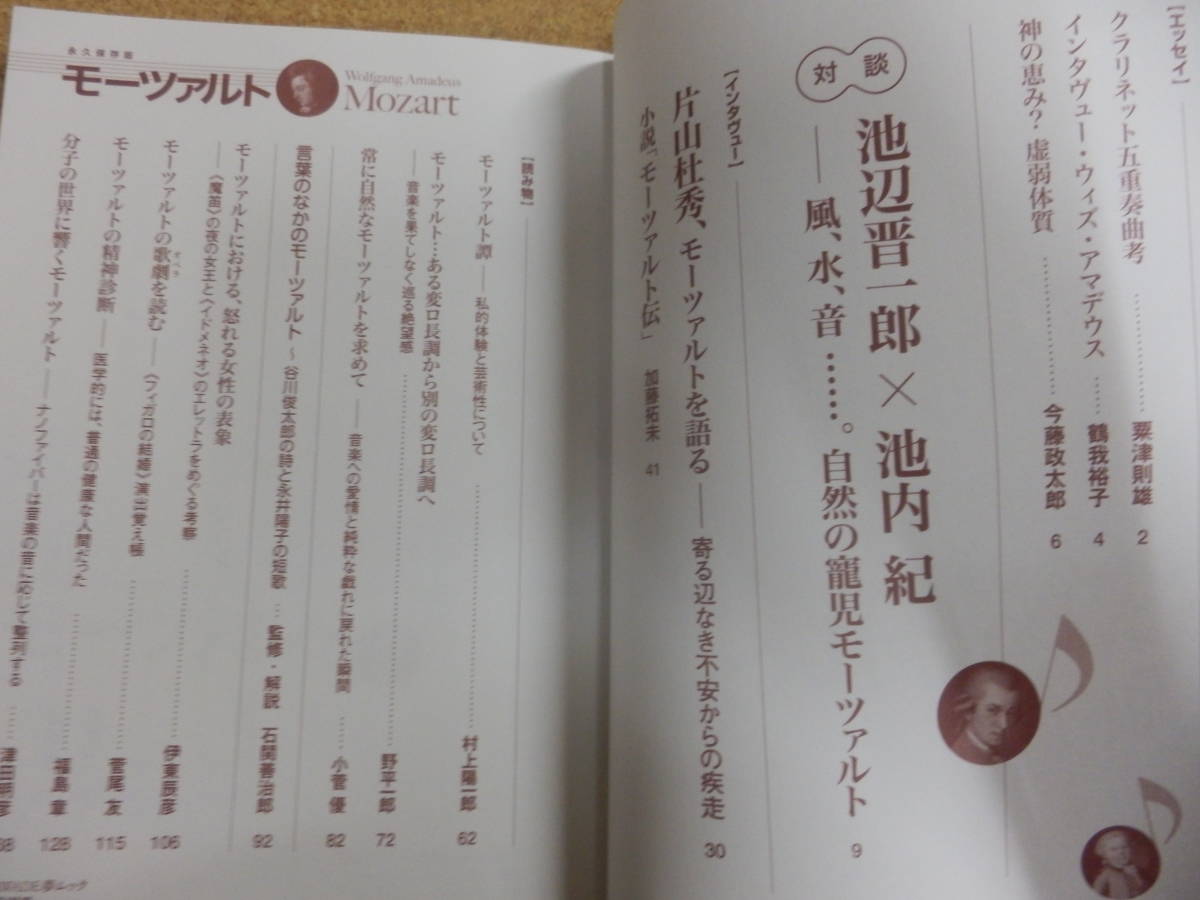 【エッセイ】
クラリネット五重奏曲考 ……… 粟津則雄 2
インタヴュー・ウィズ・アマデウス …… 鶴我裕子 4
神の恵み?・虚弱体質 ……… 今藤政太郎 6
対談
池辺晋一郎×池内 紀
——風、水、音……。自然の寵児モーツァルト 9
【インタヴュー】
片山杜秀、モーツァルトを語る——寄る辺なき不安からの疾走 30
小説「モーツァルト伝」 加藤拓未 41
永久保存版
モーツァルト
Wolfgang Amadeus
Mozart
【読み物】
モーツァルト譚——私的体験と芸術性について ……… 村上陽一郎 62
モーツァルト…ある変ロ長調から別の変ロ長調へ
——音楽を果てしなく巡る絶望感 ……… 野平一郎 72
常に自然なモーツァルトを求めて——音楽への愛情と純粋な戯れに戻れた瞬間 …… 小菅 優 82
言葉のなかのモーツァルト~谷川俊太郎の詩と永井陽子の短歌 … 監修・解説 石関善治郎 92
モーツァルトにおける、怒れる女性の表象
——〈魔笛〉の夜の女王と〈イドメネオ〉のエレットラをめぐる考察 ……… 伊東辰彦 106
モーツァルトの歌劇(オペラ)を読む——〈フィガロの結婚〉演出覚え帳 ……… 菅尾 友 115
モーツァルトの精神診断——医学的には、普通の健康な人間だった ……… 福島 章 128
分子の世界に響くモーツァルト——ナノファイバーは音楽の音に応じて整列する …… 津田明彦 38
夢ムック